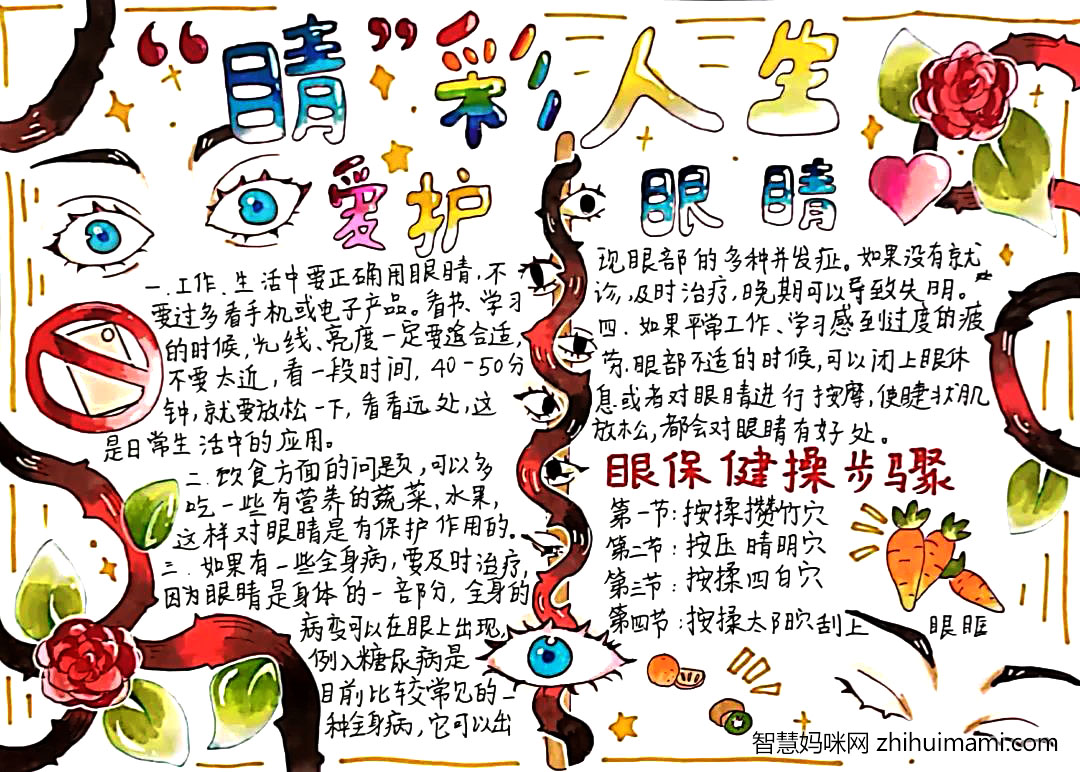 “睛”彩人生
爱护眼睛
一.工作.生活中要正确用眼睛,不
要过多看手机或电子产品。看书、学习
的时候,光线、亮度一定要适合适,
不要太近,看一段时间,40-50分
钟,就要放松一下,看看远处,这
是日常生活中的应用。
二.饮食方面的问题,可以多
吃一些有营养的蔬菜.水果,
这样对眼睛是有保护作用的。
三.如果有一些全身病,要及时治疗,
因为眼睛是身体的一部分,全身的
病变可以在眼上出现,
例入糖尿病是
目前比较常见的一
种全身病,它可以出
现眼部的多种并发症。如果没有就
诊,及时治疗,晚期可以导致失明。
四.如果平常工作、学习感到过度的疲
劳.眼部不适的时候,可以闭上眼休
息或者对眼睛进行按摩,使睫状肌
放松,都会对眼睛有好处。
眼保健操步骤
第一节:按揉攒竹穴
第二节:按压睛明穴
第三节:按揉四白穴
第四节:按揉太阳穴刮上眼眶
智慧妈咪网 zhihuimami.com